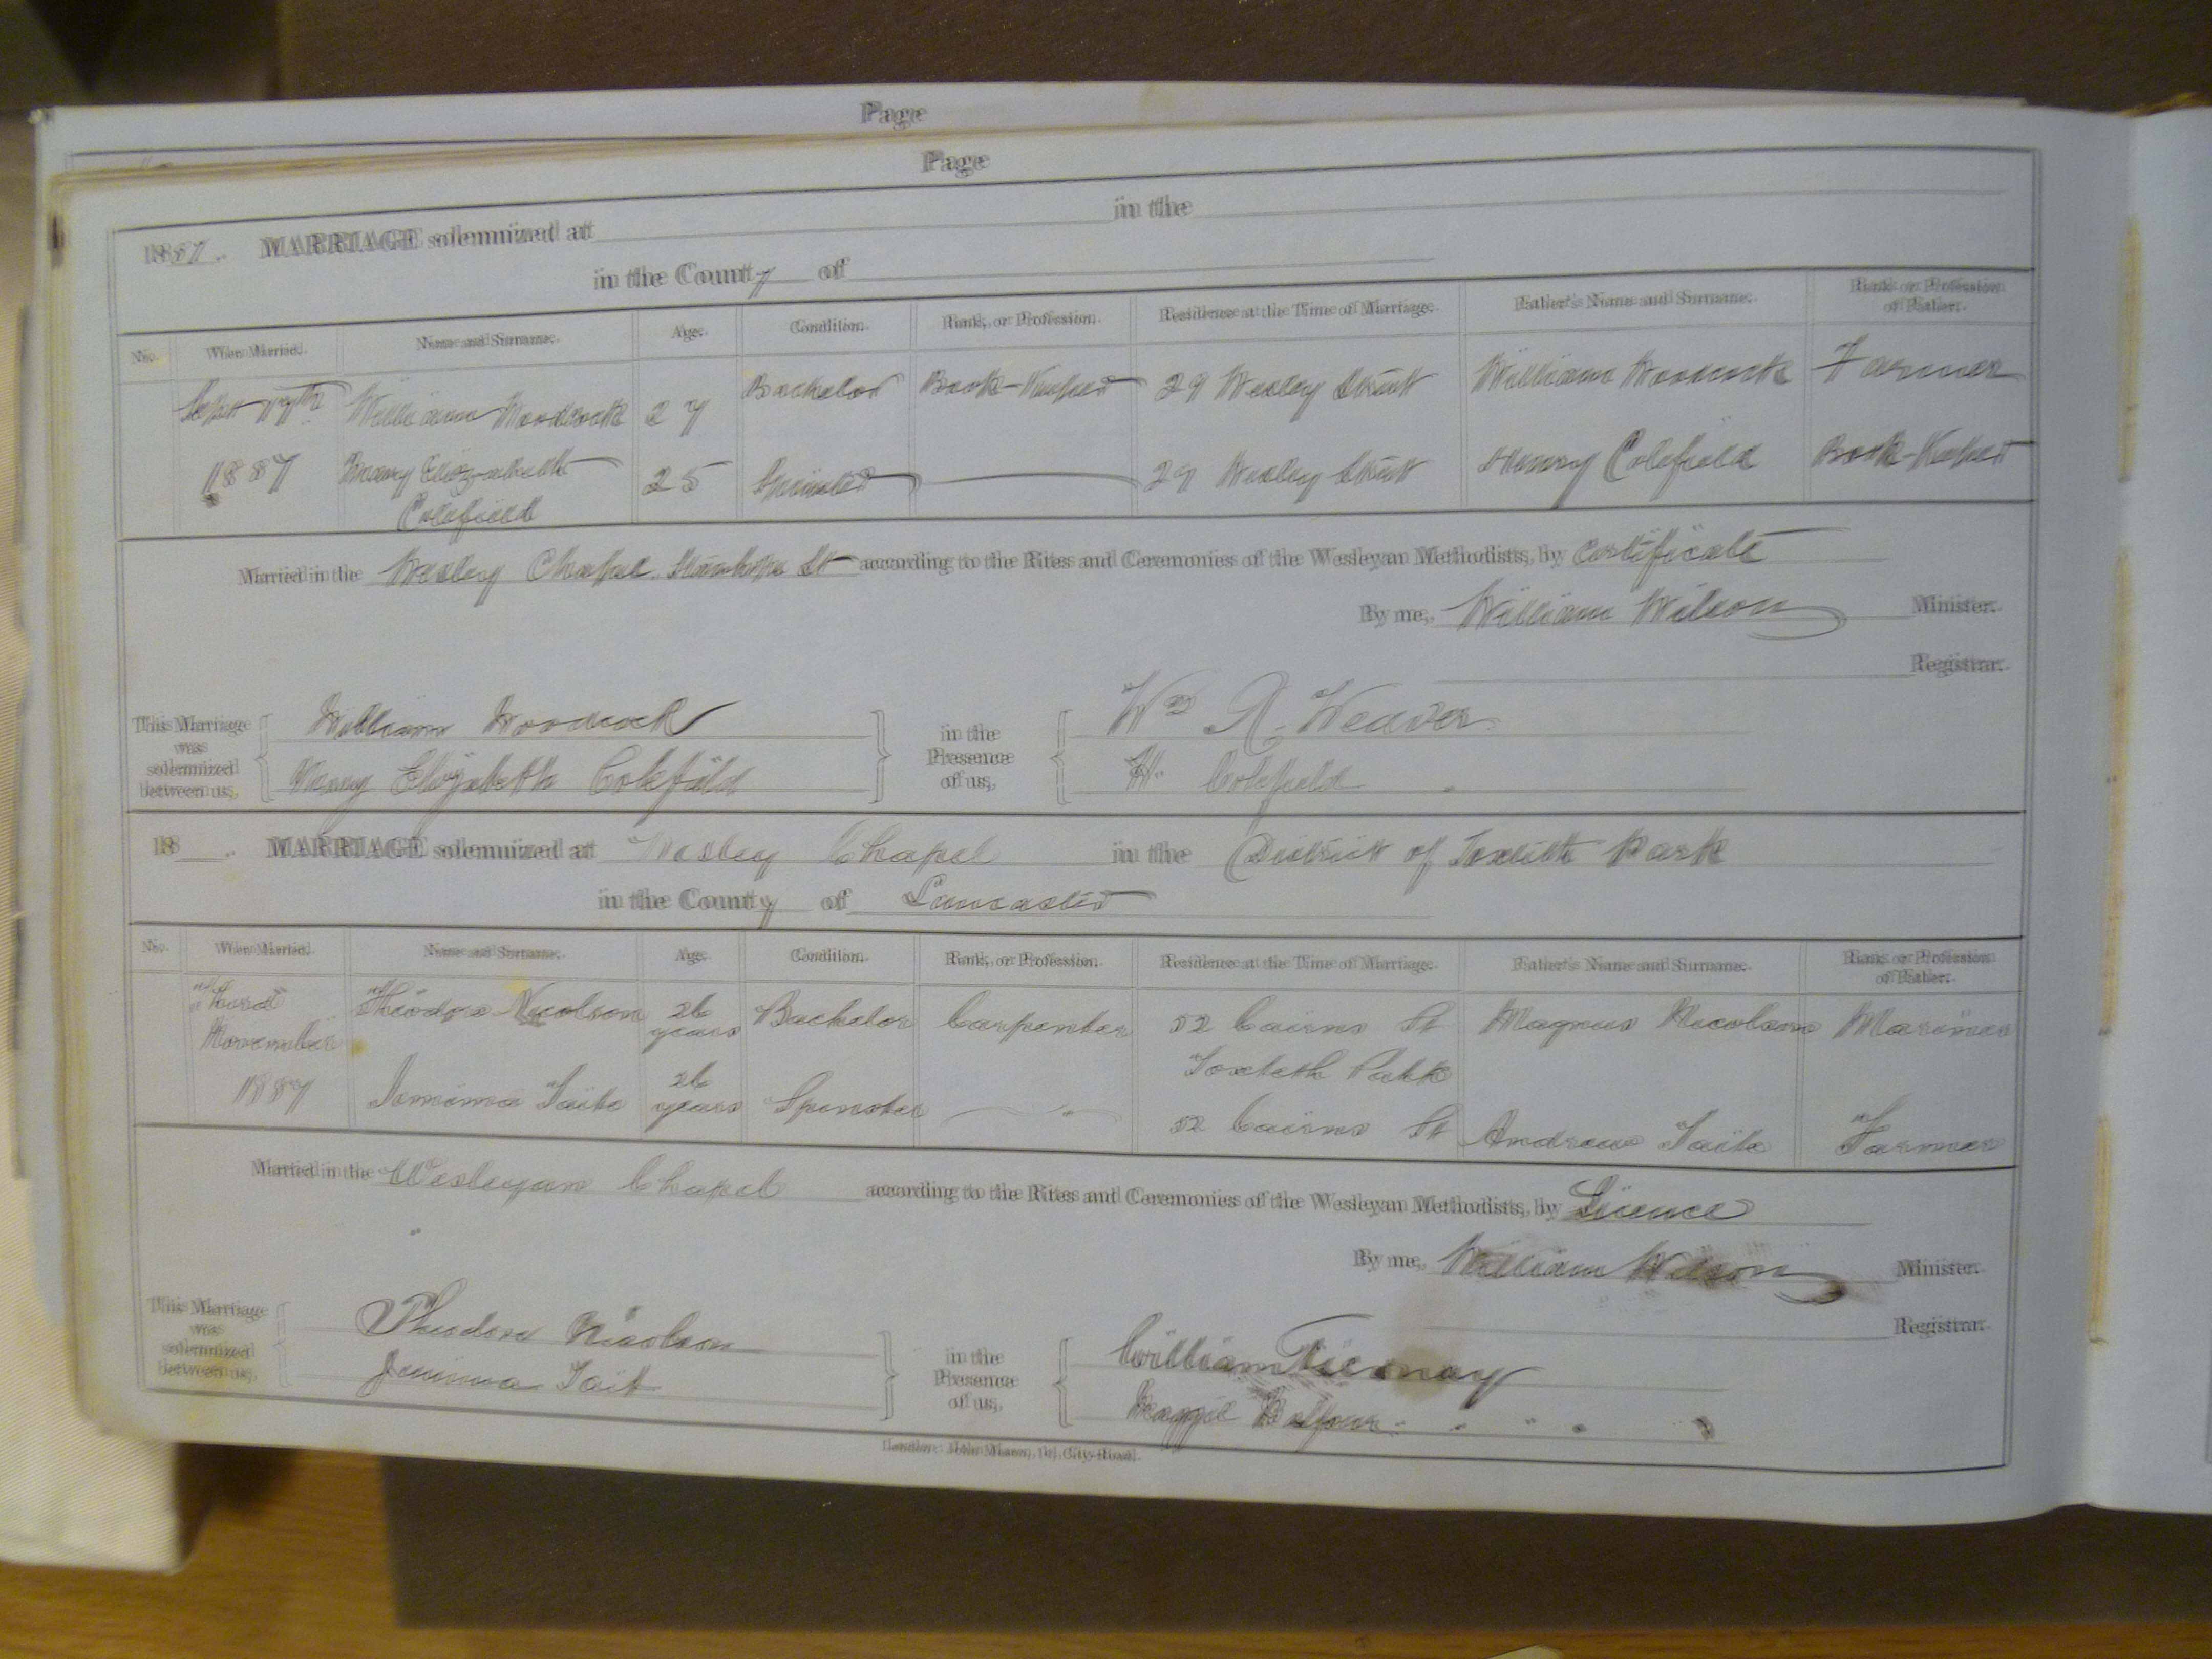 Page
Page
1887. MARRIAGE solemnized at in the
in the County of
No. When Married. Name and Surname. Age. Condition. Rank, or Profession. Residence at the Time of Marriage. Father's Name and Surname. Rank or Profession of Father.
Sept 17th William Woodcock 27 Bachelor Book-Keeper 29 Wesley Street William Woodcock Farmer
1887 Mary Elizabeth Colefield 25 Spinster 29 Wesley Street Henry Colefield Book-Keeper
Married in the Wesley Chapel Stanhope St according to the Rites and Ceremonies of the Wesleyan Methodists, by Certificate
By me, William Wilson Minister.
Registrar.
This Marriage was solemnized between us, William Woodcock in the Presence of us, Wm R. Weaver
Mary Elizabeth Colefield H. Colefield
18 . MARRIAGE solemnized at Wesley Chapel in the District of Toxteth Park
in the County of Lancaster
No. When Married. Name and Surname. Age. Condition. Rank, or Profession. Residence at the Time of Marriage. Father's Name and Surname. Rank or Profession of Father.
November Theodore Nicolson 26 years Bachelor Carpenter 52 Cairns St Toxteth Park Magnus Nicolson Mariner
1887 Jemima Taite 26 years Spinster 52 Cairns St Andrew Taite Farmer
Married in the Wesleyan Chapel according to the Rites and Ceremonies of the Wesleyan Methodists, by Licence
By me, William Wilson Minister.
Registrar.
This Marriage was solemnized between us, Theodore Nicolson in the Presence of us, William
Jemima Tait Maggie Balfour
London: John Mason, 14, City-Road.